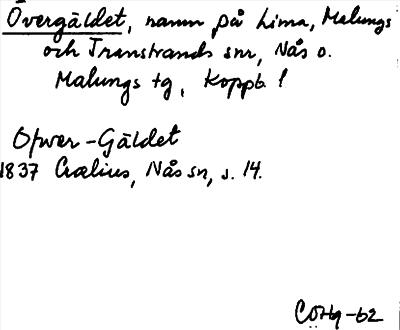 Övergäldet, namn på Lima, Malungs
och Transtrands snr, Nås o.
Malungs tg, Koppb. l
Ofwer-Gäldet
1837 Crælius, Nås sn, s. 14.